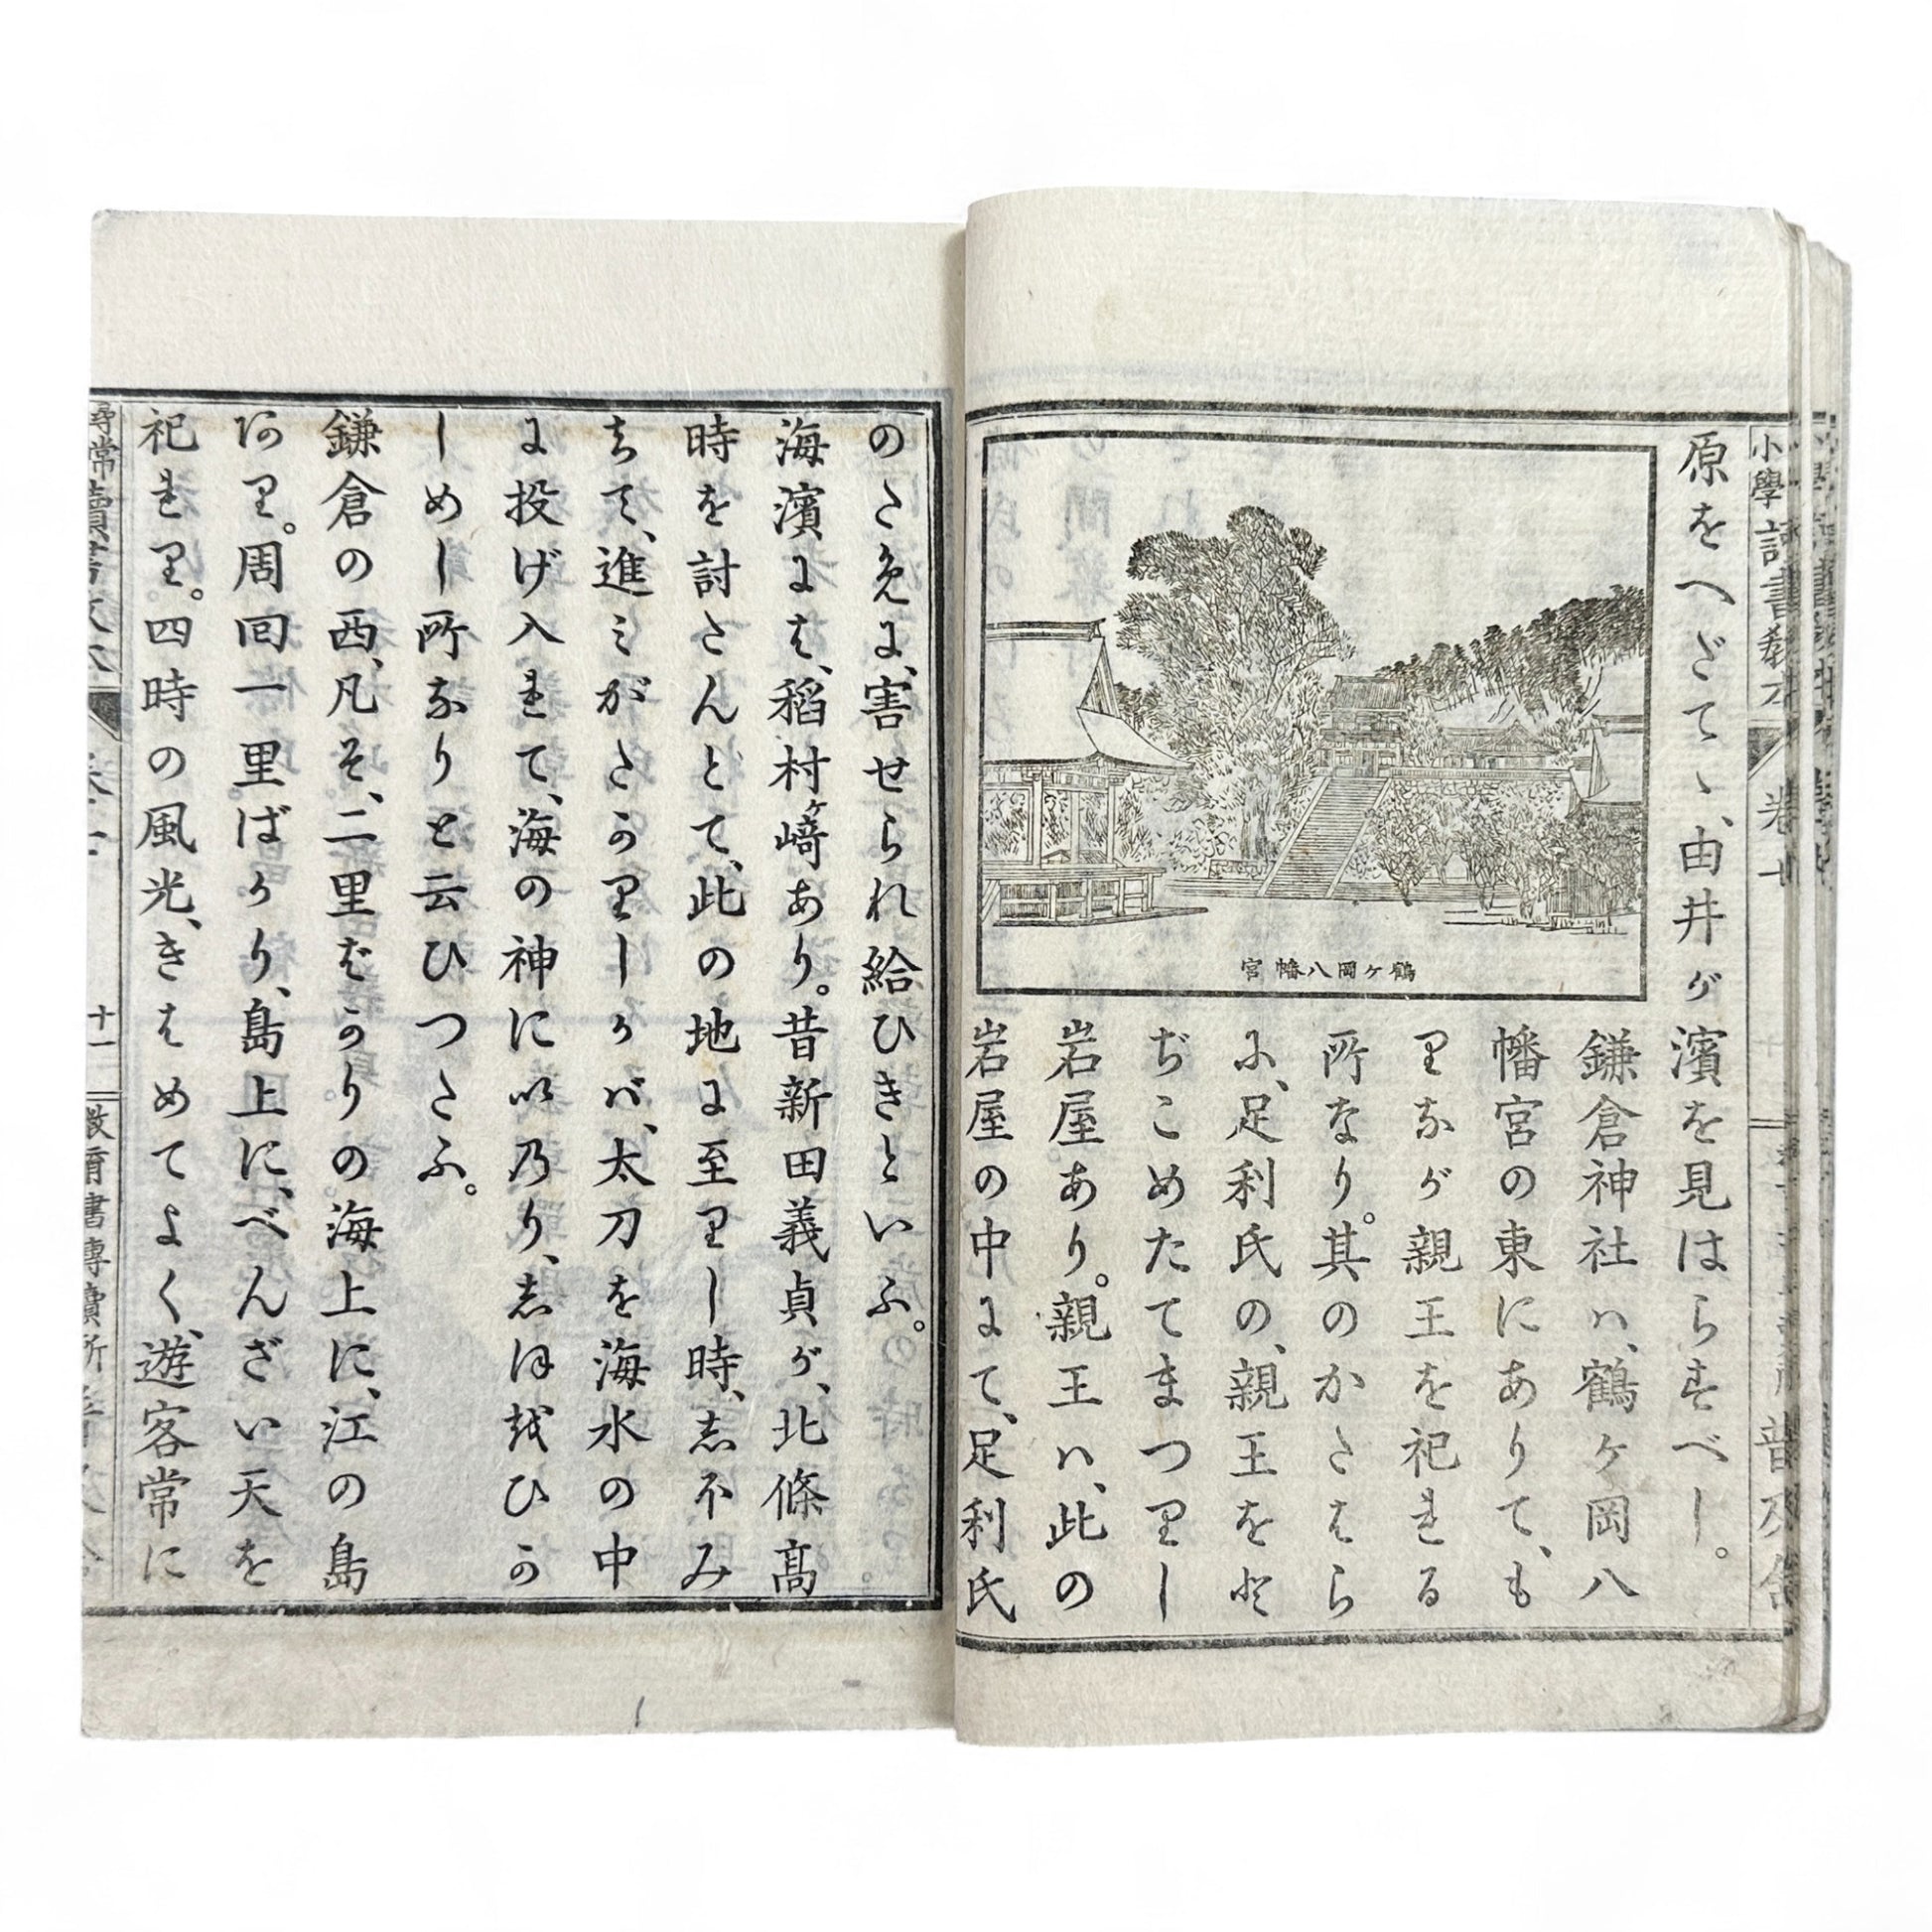 小學讀書教本
卷七
普及舍
原をへだてゝ、由井が濱を見はらすべし。
鶴ケ岡八幡宮
鎌倉神社ハ、鶴ケ岡八
幡宮の東にありて、も
りなが親王を祀れる
所なり。其のかたはら
に、足利氏の、親王をと
ぢこめたてまつりし
岩屋あり。親王ハ、此の
岩屋の中にて、足利氏
のために、害せられ給ひきといふ。
海濱には、稻村ヶ﨑あり。昔新田義貞が、北條髙
時を討たんとて、此の地に至りし時、しほみ
ちて、進みがたかりしかバ、太刀を海水の中
に投げ入れて、海の神にいのり、しほをひか
しめし所なりと云ひつたふ。
鎌倉の西、凡そ、二里ばかりの海上に、江の島
あり。周回一里ばかり、島上に、べんざい天を
祀れり。四時の風光、きはめてよく、遊客常に
十一